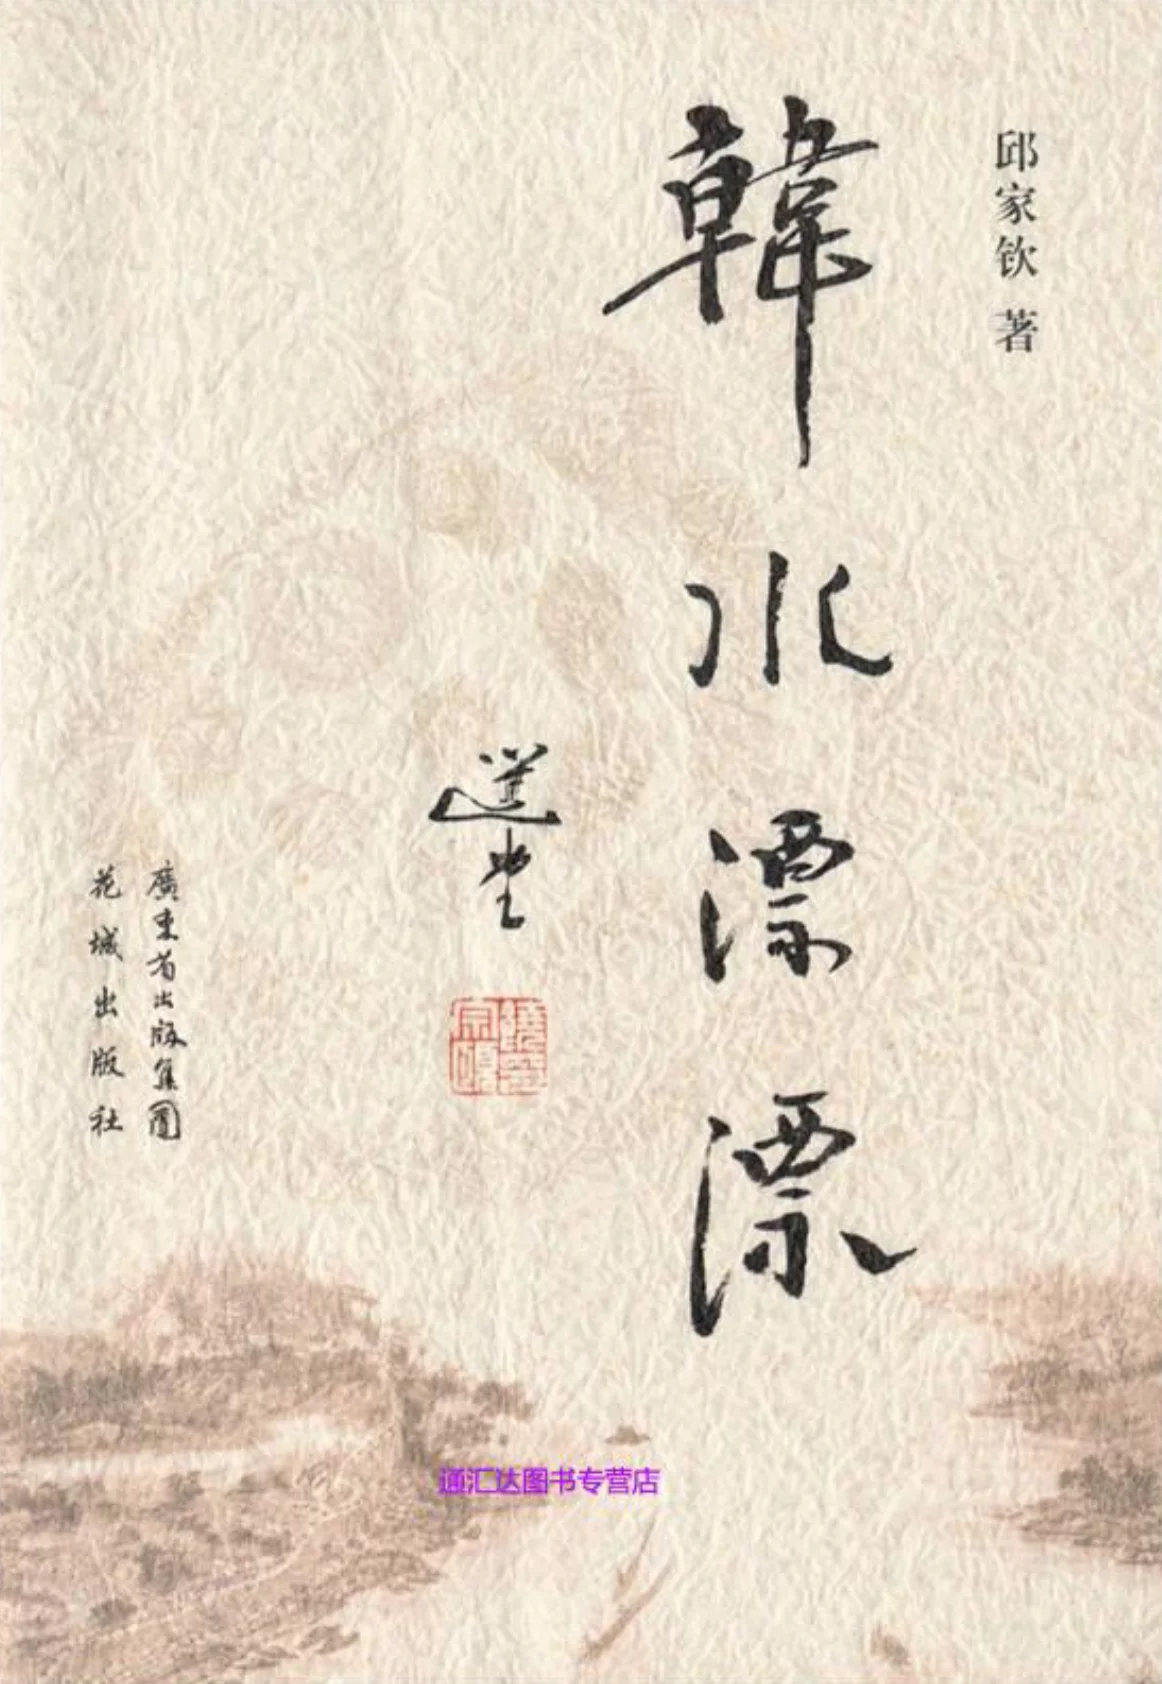 邱家钦 著
韓水漂漂
選堂
廣東省出版集團
花城出版社
通汇达图书专营店